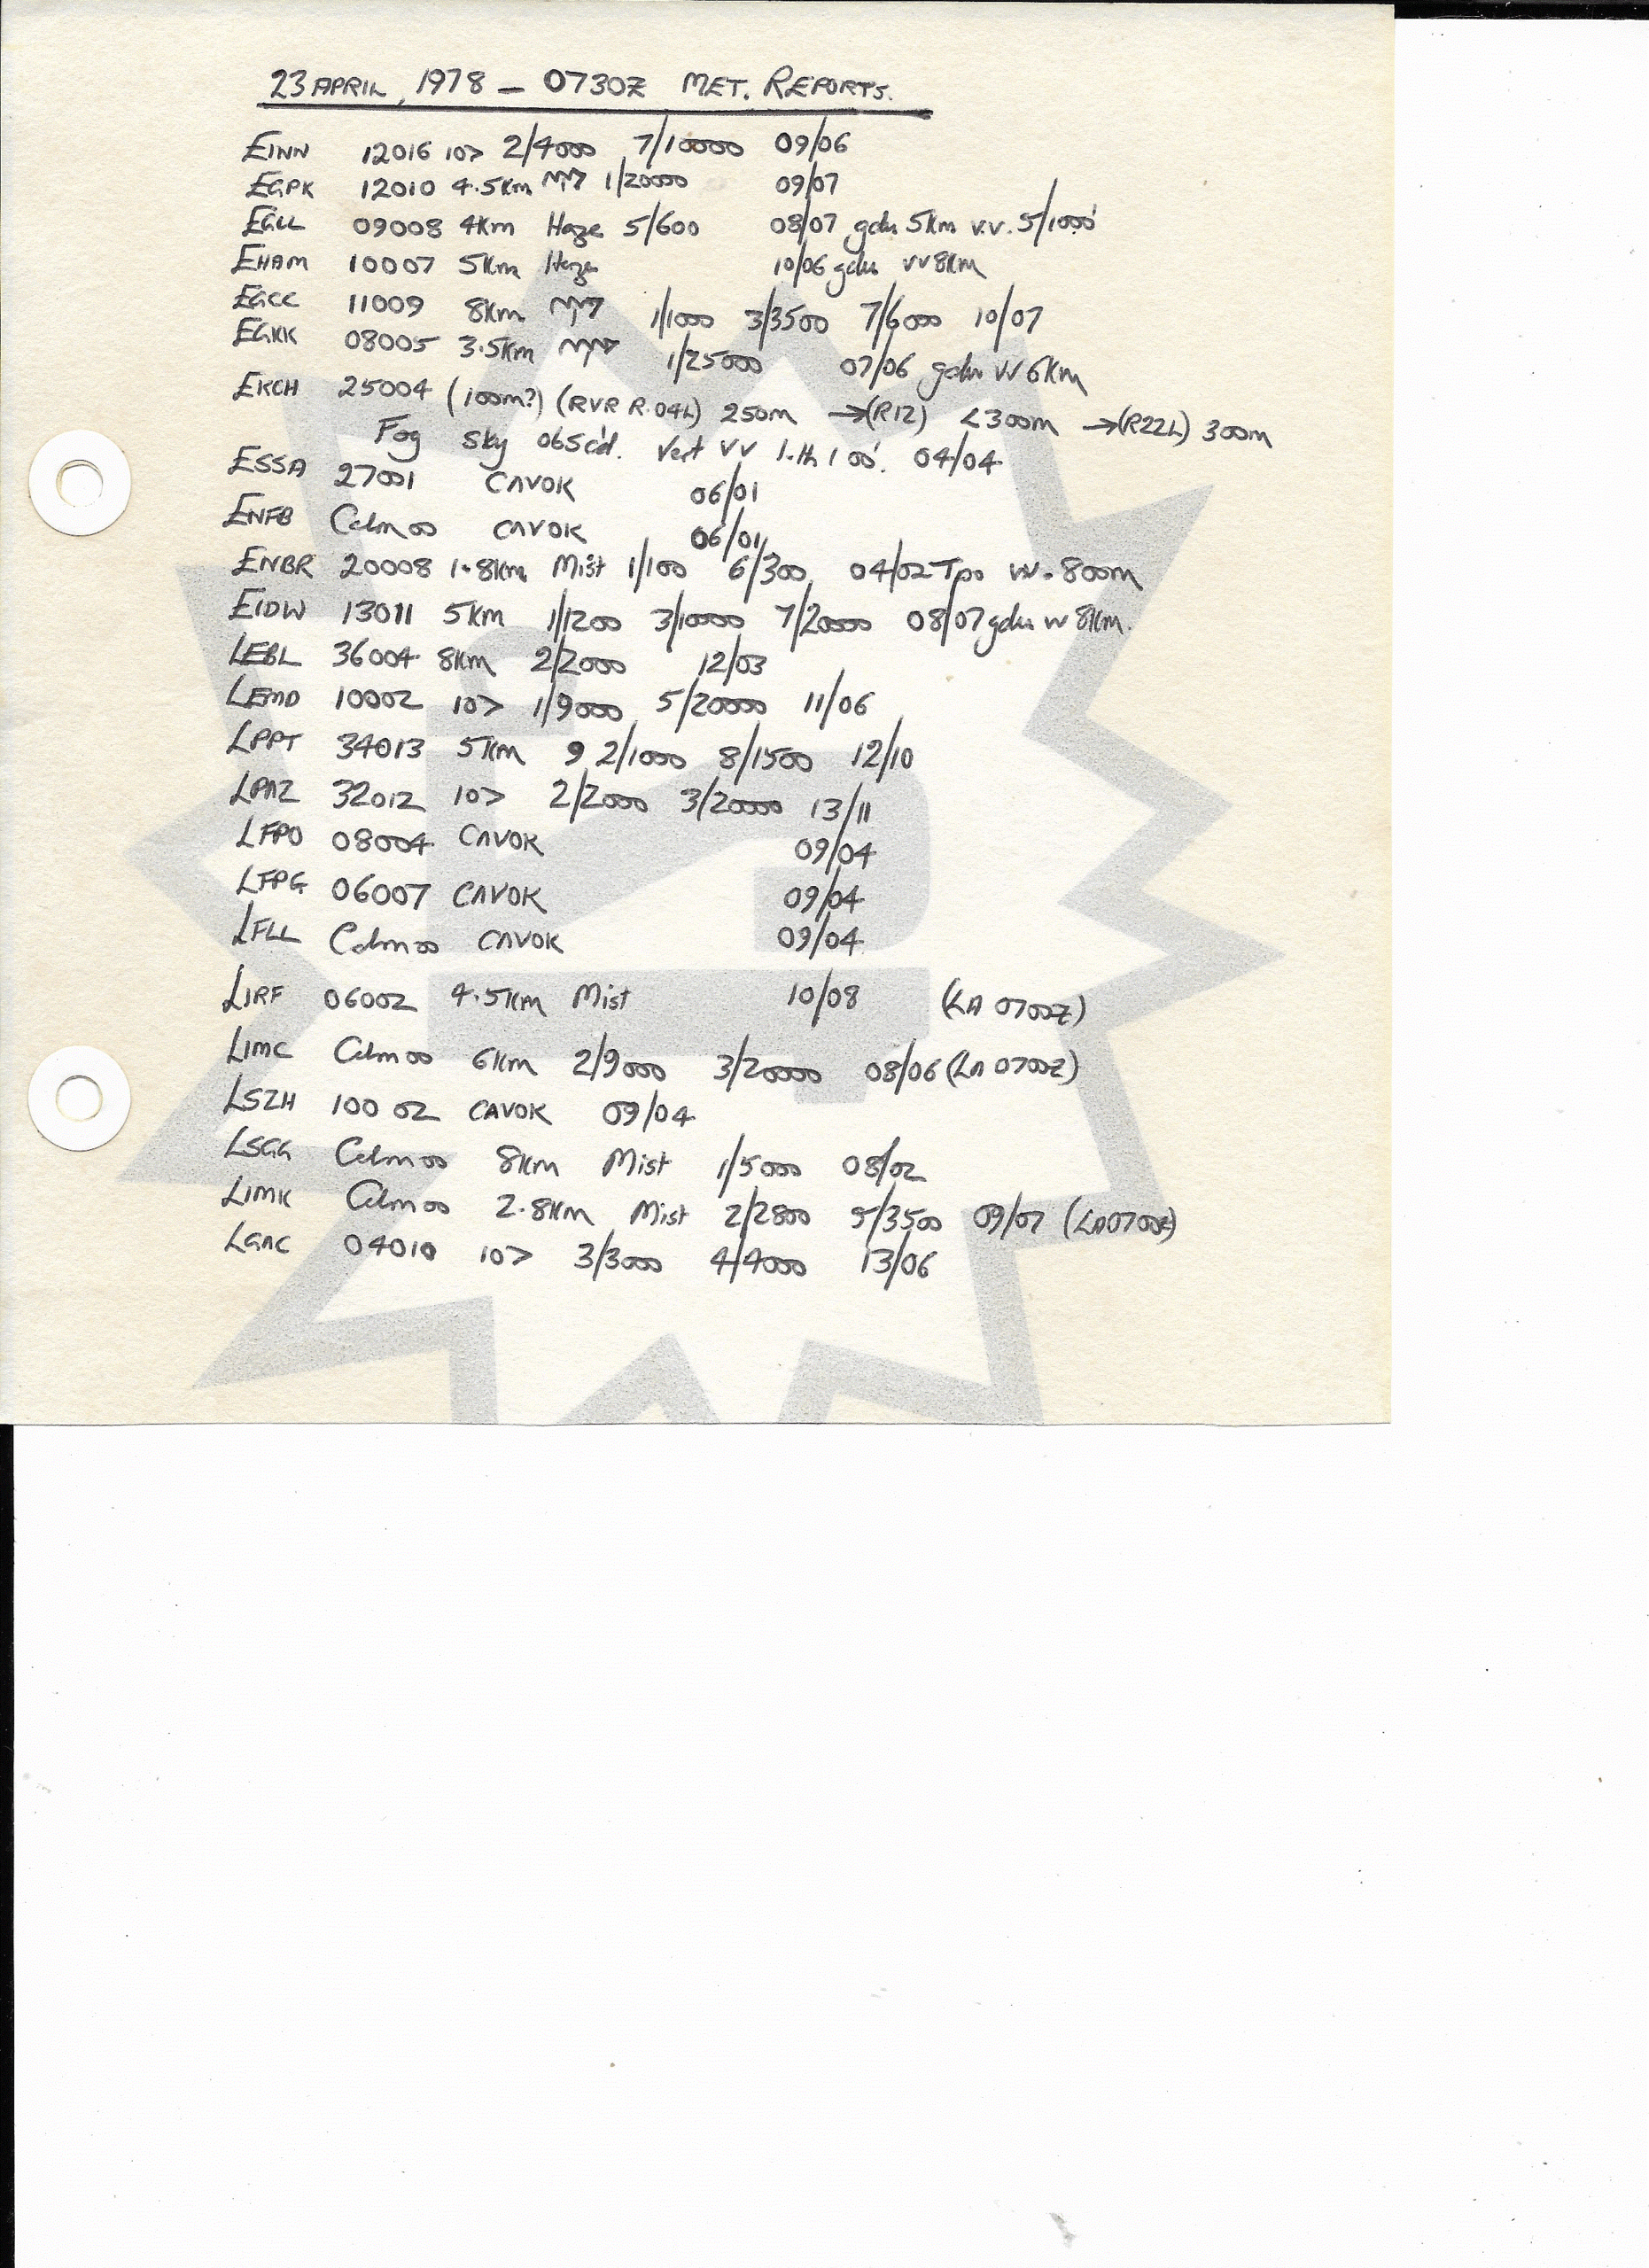 23 APRIL, 1978 – 0730Z MET. REPORTS.
EINN 12016 10> 2/4000 7/10000 09/06
EGPK 12010 4.5km 1/20000 09/07
EGLL 09008 4km Haze 5/600 08/07 gdu 5km v.v. 5/1000'
EHAM 10007 5km Haze 10/06 gdu vv 8km
EGCC 11009 8km 1/1000 3/3500 7/6000 10/07
EGKK 08005 3.5km 1/25000 07/06 gdu vv 6km
EKCH 25004 (100m?) (RVR R.04L) 250m →(R12) <300m →(R22L) 300m
Fog Sky obsc'd. Vert VV l.th 100'. 04/04
ESSA 27001 CAVOK 06/01
ENFB Calm 00 CAVOK 06/01
ENBR 20008 1.8km Mist 1/100 6/300 04/02 Tpo vv. 800m
EIDW 13011 5km 1/1200 3/10000 7/20000 08/07 gdu vv 8km.
LEBL 36004 8km 2/2000 12/03
LEMD 10002 10> 1/9000 5/20000 11/06
LPPT 34013 5km 9 2/1000 8/1500 12/10
LPAZ 32012 10> 2/2000 3/20000 13/11
LFPO 08004 CAVOK 09/04
LFPG 06007 CAVOK 09/04
LFLL Calm 00 CAVOK 09/04
LIRF 06002 4.5km Mist 10/08 (LA 0700Z)
LIMC Calm 00 6km 2/9000 3/20000 08/06 (LA 0700Z)
LSZH 100 02 CAVOK 09/04
LSGG Calm 00 8km Mist 1/5000 08/02
LIMK Calm 00 2.8km Mist 2/2800 5/3500 09/07 (LA0700Z)
LGAC 04010 10> 3/3000 4/4000 13/06